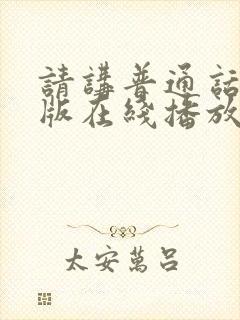 請講普通話
版在綫播放
太安萬呂